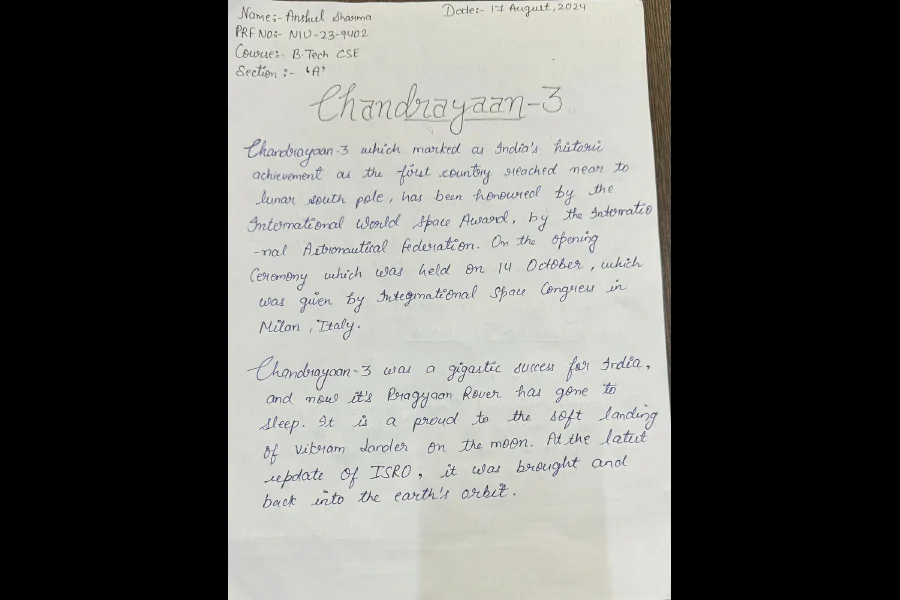 Name:- Anshul Sharma
Date:- 17 August, 2024
PRF NO:- NIU-23-9402
Course:- B.Tech CSE
Section :- 'A'
Chandrayaan-3
Chandrayaan-3 which marked as India's historic
achievement as the first country reached near to
lunar south pole, has been honoured by the
International World Space Award, by the Internatio
-nal Astronautical Federation. On the opening
Ceremony which was held on 14 October, which
was given by International Space Congress in
Milan, Italy.
Chandrayaan-3 was a gigastic success for India,
and now it's Pragyaan Rover has gone to
sleep. It is a proud to the soft landing
of Vikram Lander on the moon. At the latest
update of ISRO, it was brought and
back into the earth's orbit.